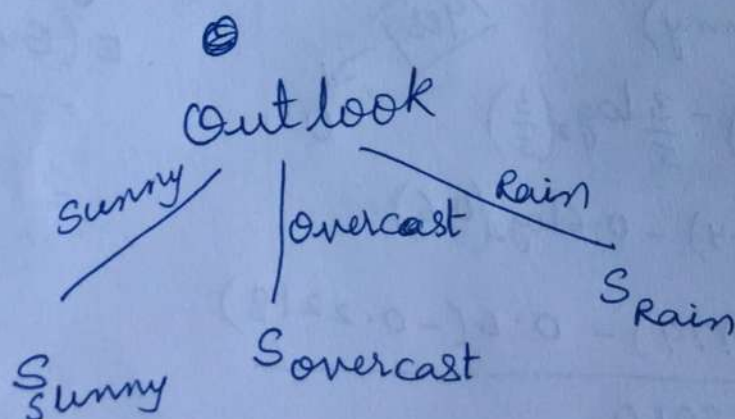 Outlook
Sunny
overcast
Rain
S Sunny
S overcast
S Rain